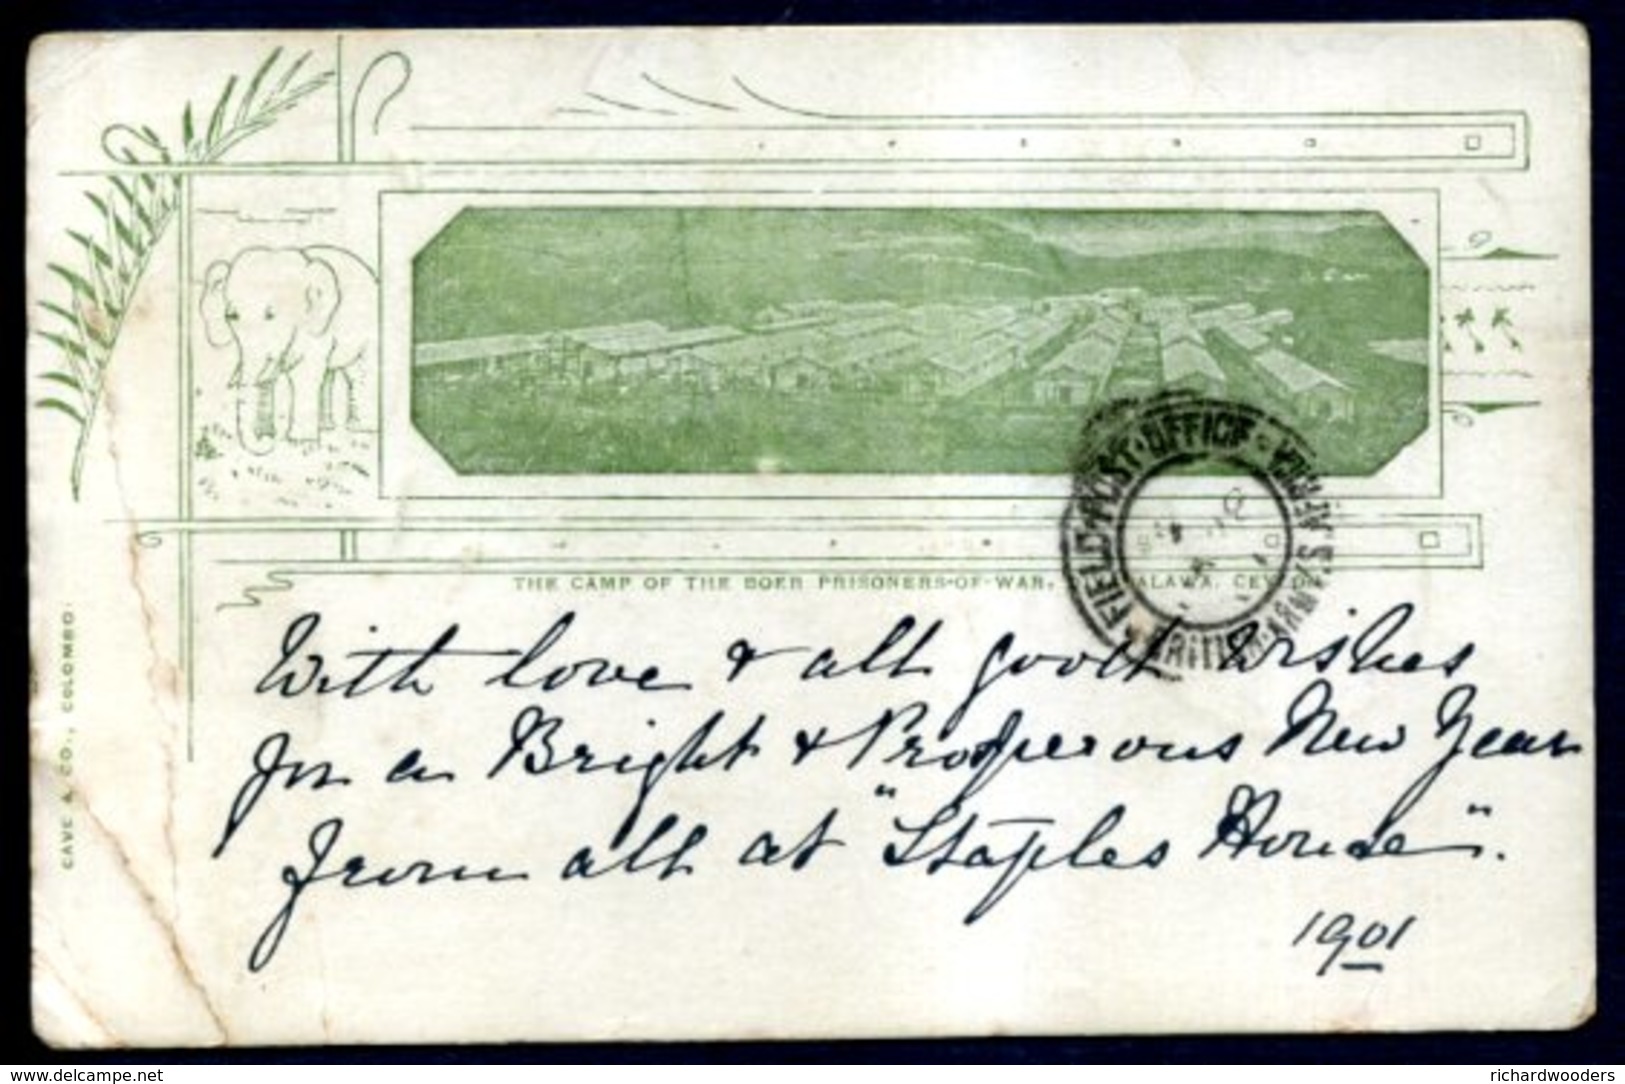 THE CAMP OF THE BOER PRISONERS-OF-WAR, ALAWA, CEYLON
FIELD·POST·OFFICE·
BRITISH·ARMY S. AFRICA
With love & all good wishes
for a Bright & Prosperous New Year
from all at "Staples House".
1901
CAVE & CO., COLOMBO.
www.delcampe.net
richardwooders